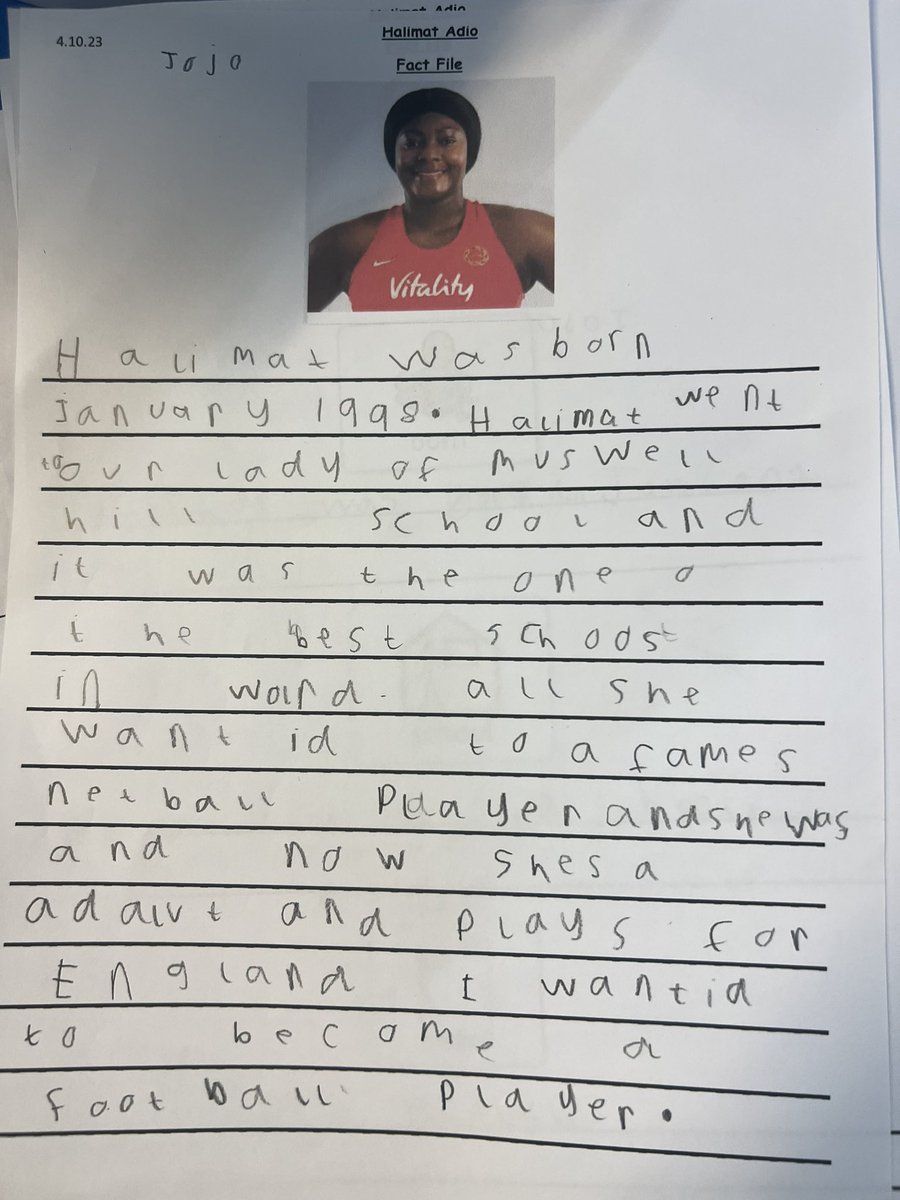 4.10.23
Halimat Adio
Jojo
Fact File
Vitality
Halimat was born
January 1998. Halimat went
to our lady of muswell
hill school and
it was the one o
the best schoost
in world. all she
wantid to a fames
netball Player and she was
and now shes a
adault and plays for
England I wantid
to become a
football player.